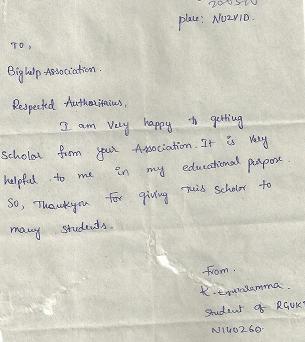 place: NUZVID.
TO,
Bighelp Association.
Respected Authoritaius,
I am very happy to getting
Scholar from your Association. It is very
helpful to me in my educational purpose.
So, Thankyou for giving This Scholar to
many students.
from.
K.
Student of RGUKT
N140260.